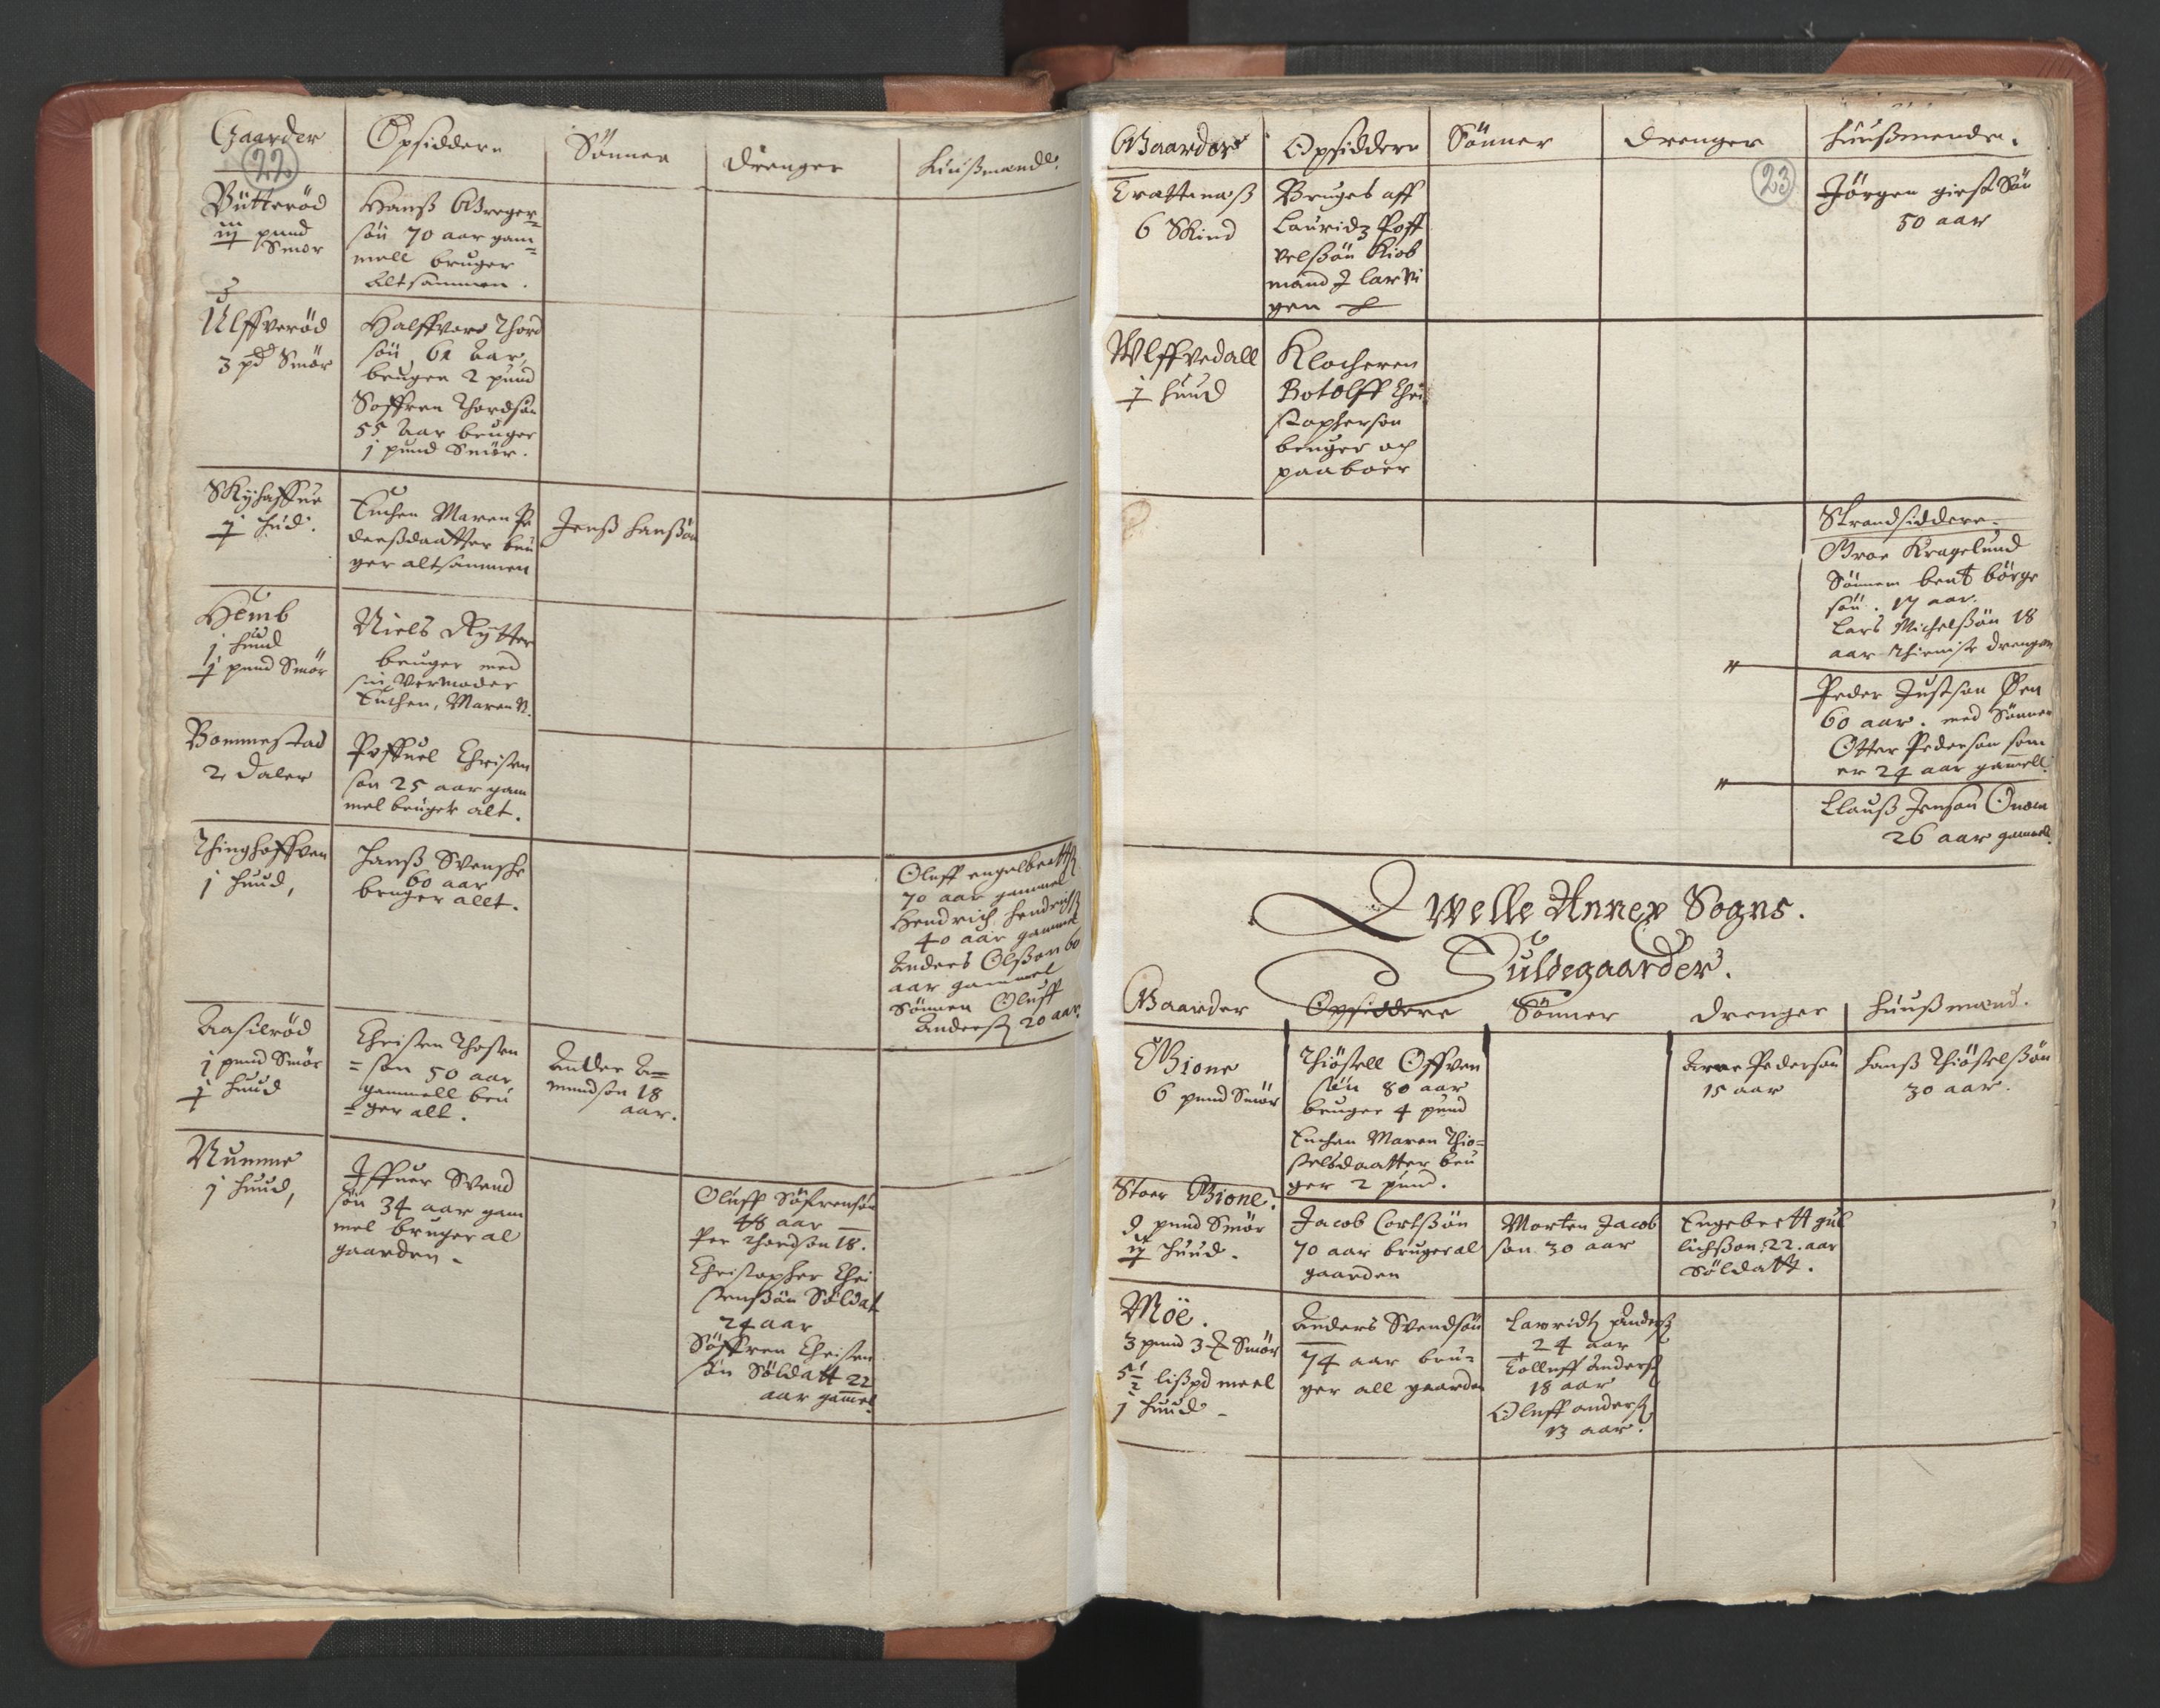 Gaarder
Opsiddere
Sønner
drenger
huußmænd
22
Bütterød
pund
Smør
Hanß Greger=
søn 70 aar gam=
mell bruger
altsammen.
Ulffverød
3 pd Smør
Halffvor Thord
søn 61 aar,
bruger 2 pund
Søffren Thordsøn
55 aar bruger
1 pund Smør.
hud.
Enchen Maren Pe
derßdaatter bru
ger altsammen
Jenß hanßøn
Hemb
1 huud
pund Smør
Niels Rytter
bruger med
sin Vermoder
Enchen, Maren
Bommestad
2 daler
Poffuel Christen
søn 25 aar gam
mel bruger alt.
Thinghoffven
1 huud,
hanß Svensche
60 aar
bruger allt.
Oluff engelbrettß
70 aar gammel
Hendrich hendrichß
40 aar gammel
Anders Olßøn 60
aar gammel
Sønnen Oluff
Anderß 20 aar.
Aasilrød
1 pund Smør
huud
Christen Thosten
=søn 50 aar
gammell bru
=ger alt.
mundsøn 18
aar.
Numme
1 huud,
Iffuer Svend
søn 34 aar gam
mel bruger al
gaarden.
Oluff Søfrensøn
48 aar
Per Thordsøn 18.
Christopher Chri
stensßøn Soldat
24 aar
Søffren Christen
søn Soldatt 22
aar gammel.
Gaarder
Opsiddere
Sønner
drenger
huußmende.
23
Trattenæß
6 Skind
Bruges aff
Lauridz Poff
velßøn Kiøb
mand I larvi
gen
Jørgen
50 aar
Wlffvedall
huud
Klocheren
Botolff Chri
stopherson
bruger och
paaboer
Strandsiddere.
Broe Kragelund
Sønnen bent børge
søn. 17 aar.
Lars Michelßøn 18
aar thieniste drenger
Peder Justsøn
60 aar. med Sønnen
Otter Pedersøn som
er 24 aar gamell.
Clauß Jensøn
26 aar gammell.
Qwelle Annex Sogns.
Fuldegaarder.
Gaarder
Opsiddere
Sønner
drenger
huußmænd.
Gione
6 pund Smør
Thiøstell Offven
søn 80 aar
bruger 4 pund
Enchen Maren Thio=
stelsdaatter bru
ger 2 pund.
Arne Pedersøn
15 aar
hanß Thiøstelßøn
30 aar.
Stoer Gione.
pund Smør
huud.
Jacob Cortßøn
70 aar bruger al
gaarden
Morten Jacob
søn 30 aar
Engebrett gul
lichßøn. 22. aar
Soldatt.
Moe.
3 pund 3 Smør
5½ lißpd meel
1 huud
Anders Svendsøn
74 aar bru=
ger all gaarden
Lavridtz Anderß
24 aar
Tolluff Anderß
18 aar
Oluff anderß
13 aar.